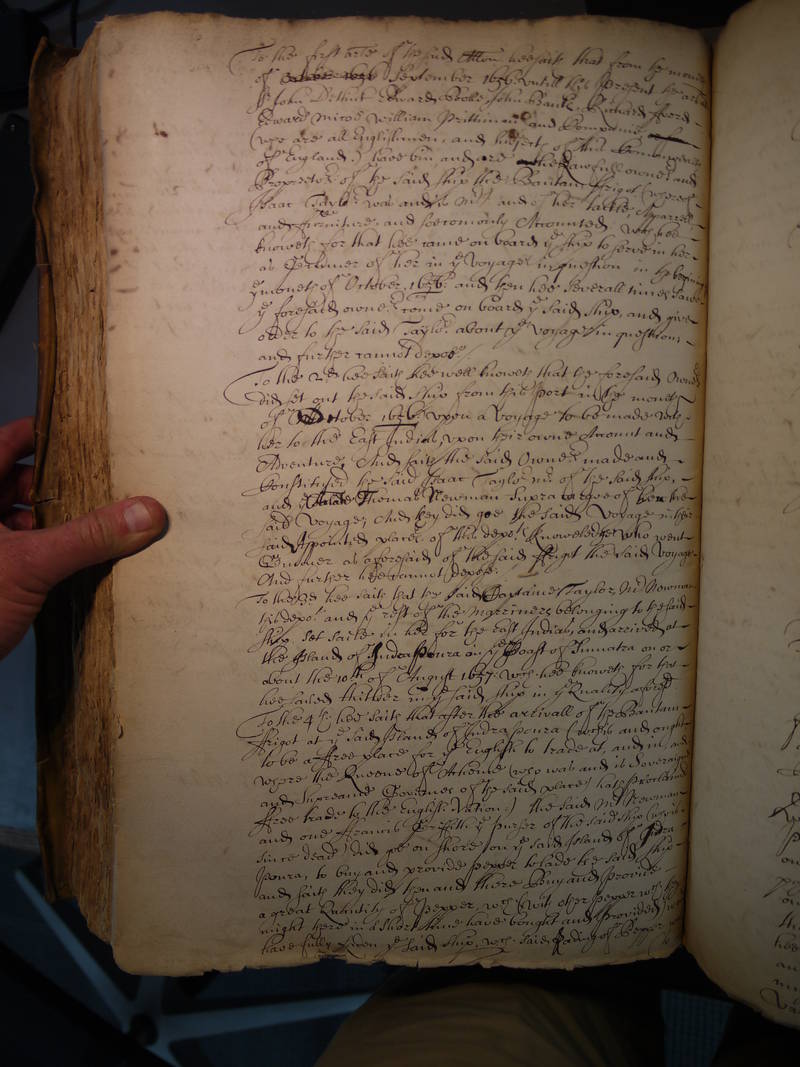 To the first arle of the said Allon hee saith that from the moneth
of September 1656 untill this present the arlate
John Dethick Edward John Banks Richard Fford
Edward Micoe William Prittiman and Companie
(who are all Englishmen, and subjects of this Commonwealth
of England) have bin and are the lawfull owners and
Proprietors of the said ship the Bantam ffrigot (whereof
Isaac Taylor was and is Mr) and of her tackle Apparrell
and ffurniture, and soe comonly Accounted, which hee
knoweth for that hee came on board ye ship to serve in her
as Gunner of her in ye Voyage in question in the begining
ye moneth of October 1656, and then hee severall times sawe
ye foresaid owners come on board ye said ship, and give
order to the said Taylor about ye Voyage in question,
and further cannot depose.
To the 2d hee saith hee well knoweth that the foresaid Owners
did set out the said ship from this Port in the moneth
of October 1656 upon a Voyage to be made with
her to the East Indias, upon their owne Account and
Adventure, And saith the said Owners made and
Constituted the said Isaac Taylor mr of the said ship,
and ye Thomas Newman Supra Cargoe of her the
said Voyage, And they did goe the said Voyage in their
said Appointed places of this depots knowledge who went
Gunner as aforesaid of the said ffrigot the said Voyage
And further hee cannot depose.
To the 3d hee saith that the said Captaine Taylor, Mr Newman
this depot and ye rest of the Marriners belonging to the said
ship, set saile in her for the East Indias, and arrived at
the Island of Indrapoura on ye Coast of Sumatra on or
about the 10th of August 1657, which hee knoweth for that
hee sailed thither in ye said ship in ye Quality aforesd
To the 4th hee saith that after the arrivall of the Bantam
ffrigot at ye said Island of Indrapoura (which is and ought
to be a ffree place for ye English to trade at, and in, and
where the Queene of Acheine (who was and is Soveraigne
and Supreame Governes of the said place) hath proclaimed
ffree trade to the English Nation) the said Mr Newman
and one ffrancis Griffith ye purser of the said ship (
since dead) did goe on shore on ye said Island of Indra
poura, to buy and provide pepper to lade the said ship
and saith they did then and there buy and provide
a great Quantity of Pepper, which (with other pepper which they
might there in a short time have bought and provided)
have fully laden ye said ship, which said lading of Pepper